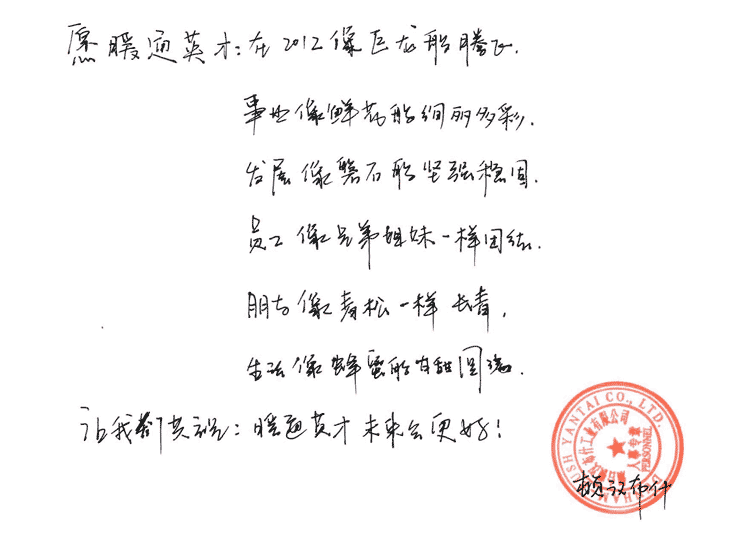 愿暖通英才:在2012像巨龙般腾飞.
事业像鲜花般绚丽多彩.
发展像磐石般坚强稳固.
员工像兄弟姐妹一样团结.
朋友像青松一样长青,
生活像蜂蜜般甘甜圆满.
让我们共祝:暖通英才未来会更好!
YANTAI CO., LTD.
工业有限公司
人事专章
PERSONNEL
布什